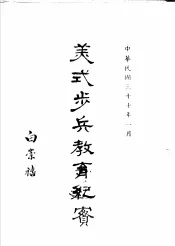 中華民國三十七年一月
美式步兵教育紀實
白崇禧